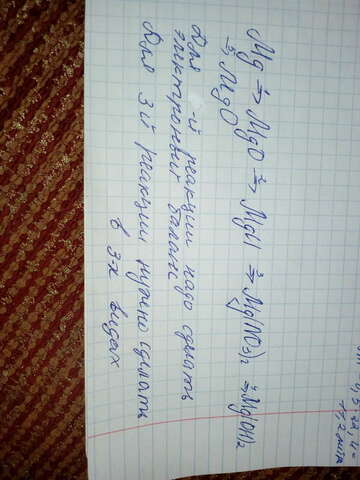 Mg →¹ MgO →² MgCl →³ Mg(NO₃)₂ →⁴ Mg(OH)₂
→⁵ MgO
Для -й реакции надо сделать
электронный баланс
Для 3й реакции нужно сделать
в 3-х видах